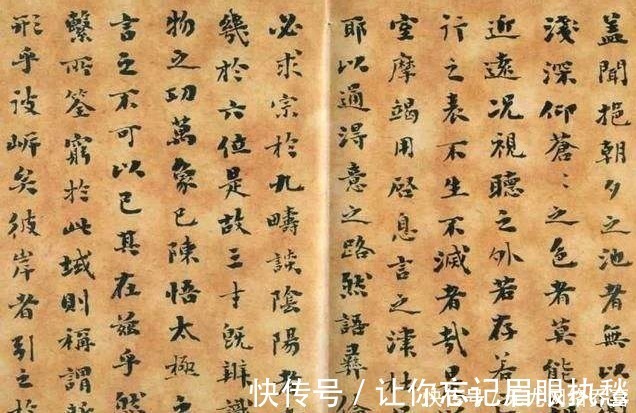 蓋聞挹朝夕之池者無以
淺深仰蒼〻之色者莫能
近遠況視聽之外若存若
行之表不生不滅者哉是
室摩竭用啓息言之津杜
耶以通淂意之路然語彝
必求宗於九疇談陰陽者
幾於六位是故三才既辨識
物之功萬象已陳悟太極之
言之不可以已其在茲乎然
繫所筌窮於此域則稱謂所
形乎彼岸矣彼岸者引之於
快传号 / 让你忘记眉眼执愁